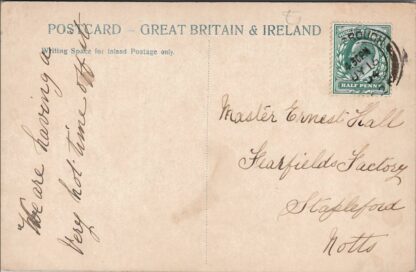 POSTCARD – GREAT BRITAIN & IRELAND
Writing Space for Inland Postage only.
We are having a
very hot time off it
HALF PENNY
Master Ernest Hall
Fearfields Factory
Stapleford
Notts